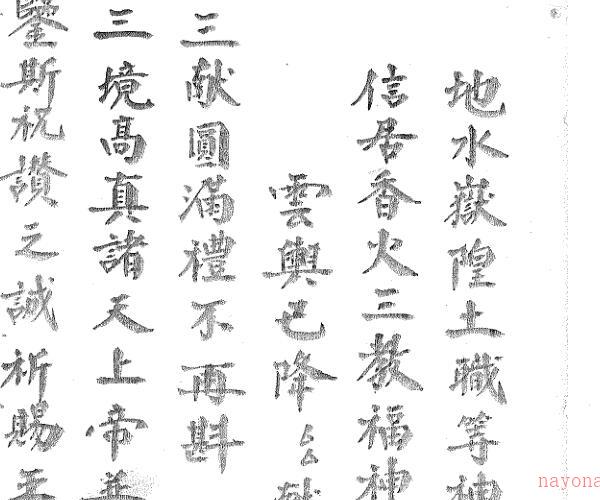 地水嶽隍土職等神
信居香火三教福神
雲輿已降
三献圓滿禮不再斟
三境高真諸天上帝
鑒斯祝讃之誠祈賜
nayona